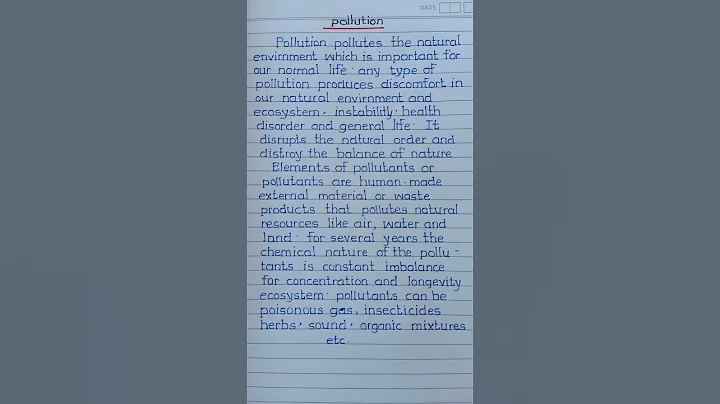 DATE
pollution
Pollution pollutes the natural
envirnment which is important for
our normal life. any type of
pollution produces discomfort in
our natural envirnment and
ecosystem, instability, health
disorder and general life. It
disrupts the natural order and
distroy the balance of nature
Elements of pollutants or
pollutants are human-made
external material or waste
products that pollutes natural
resources like air, water and
land. for several years the
chemical nature of the pollu-
tants is constant imbalance
for concentration and longevity
ecosystem. pollutants can be
poisonous gas, insecticides
herbs, sound, organic mixtures
etc.